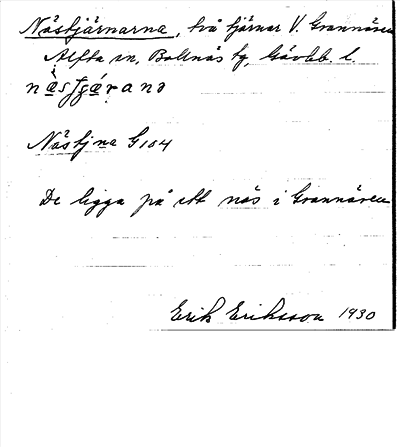 Nästjärnarna, två tjärnar V. Grannären
Alfta sn, Bollnäs tg, Gävleb. l.
Nästjna G 104
De ligga på ett näs i Grannären
Erik Eriksson 1930